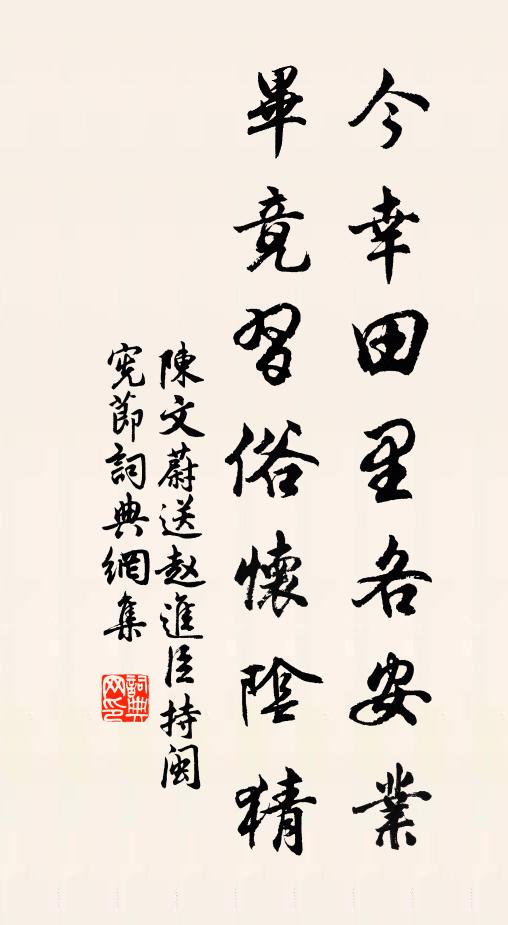 今幸田里各安業
畢竟習俗懷陰猜
陳文蔚送赵進臣持閩
宪節詞典網集
詞典网印